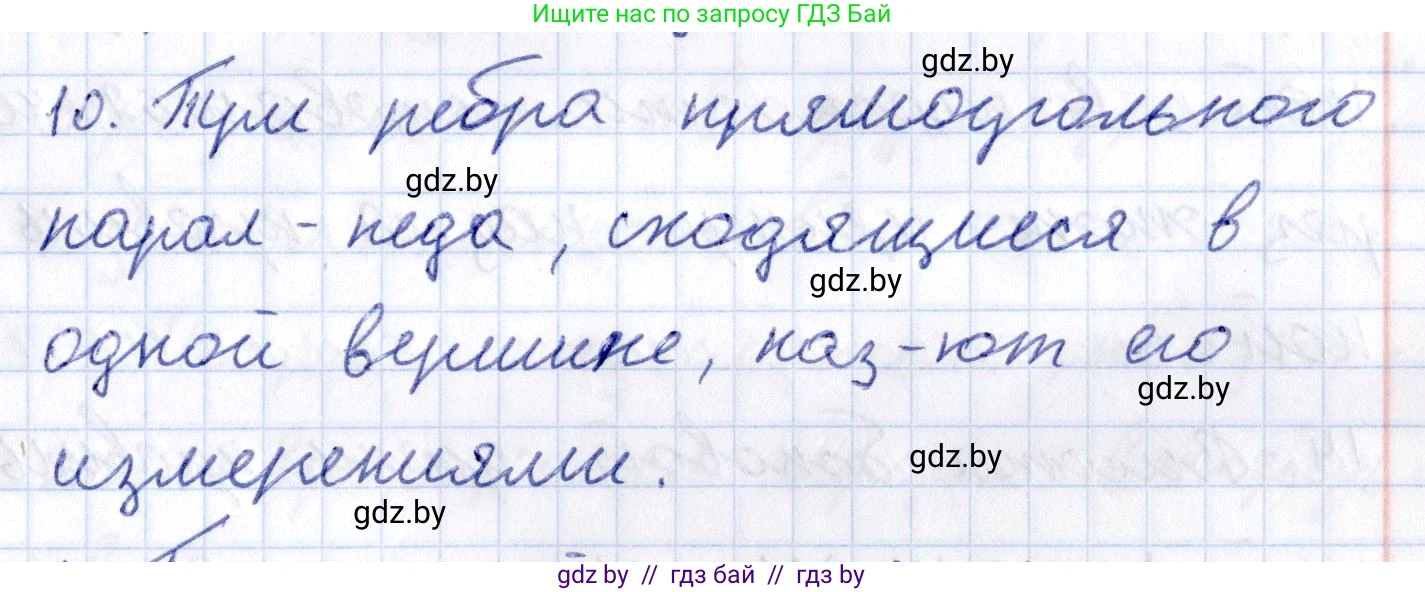 Ищите нас по запросу ГДЗ Бай
gdz.by
10. Три ребра прямоугольного
gdz.by
парал-педа, сходящиеся в
gdz.by
одной вершине, наз-ют его
gdz.by
измерениями.
gdz.by
gdz.by
gdz by // гдз бай // гдз by